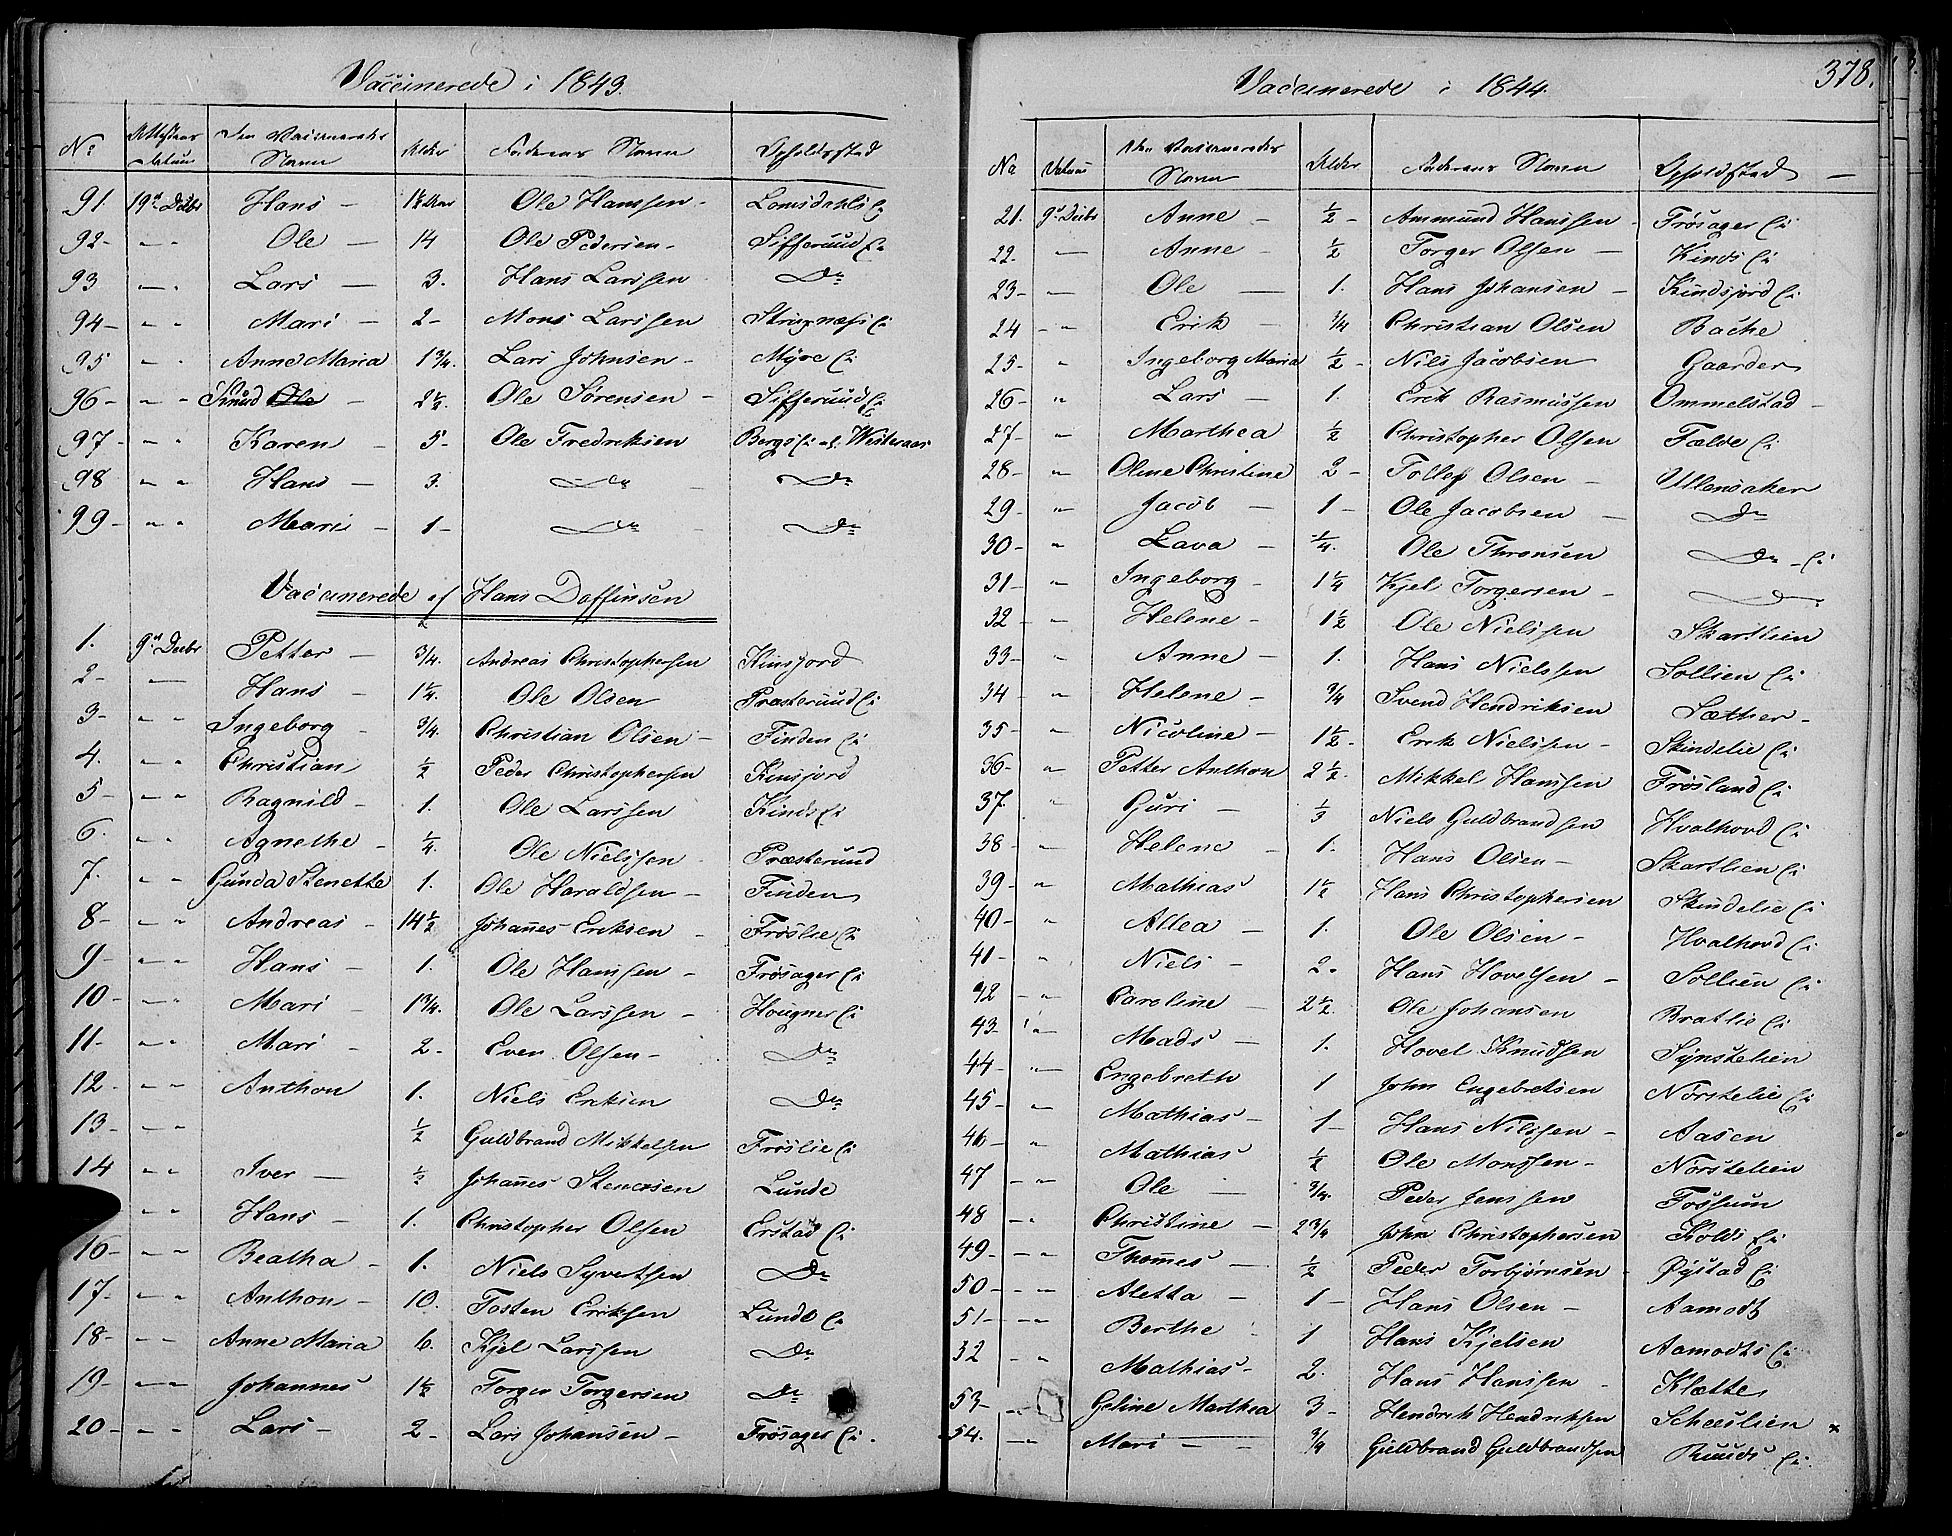 Vaccinerede i 1843.
No Attestens Datum Den Vaccineredes Navn Alder Faderens Navn Opholdsstad
91. 19de Decbr Hans - Ole Hansen - Lomsdahls
92 - " " Ole - 14 Ole Pedersen - Sifferuud Ei
93 - " Lars - 3. Hans Larssen Do
94 - " " Mari - 2 - Mons Larssen
95 " " Anne Maria 1 3/4. Lars Johnsen - Myre Ei
96 - " " Knud Ole - 2 1/2. Ole Sörensen - Sifferuud Ei
97 - " " Karen - 5 - Ole Fredriksen Bergs Ei
98 " " Hans - 3. Do Do
99 - " " Mari - 1 - Do Do
Vaccinerede af Hans Doffinsen
1. 9de Decbr Petter - 3/4. Andreas Christophersen Kinsjord
2 - Hans - 1 1/4. Ole Olsen Præsteruud Ei
3 - " " Ingeborg 3/4. Christian Olsen - Finden Ei
4. " " Christian 1/2 Peder Christophersen Kinsjord
5 - " " Ragnild - 1. Ole Larssen Kinds Ei
6. " " Agnethe - 1/4. Ole Nielssen - Præsteruud
7. " " Gunda Stenette 1. Ole Haraldsen - Finden
8 - " " Andreas - 14 1/2 Johannes Eriksen - Fröslie Ei
9 - " " Hans - 1. Ole Hanssen - Frösager Ei
10 - " " Mari - 1 3/4. Ole Larssen - Hougner Ei
11 - " " Mari - 2 - Even Olsen - Do
12 - " " Anthon 1. Niels Eriksen Do
13 - " " 1/2 Guldbrand Mikkelsen Fröslie Ei
14 " " Iver - 1/2 Johannes Stenersen Lunde
" " Hans - 1. Christopher Olsen Erstad Ei
16 - " " Beatha - 1. Niels Syvertsen Do
17 - " " Anthon - 10. Tosten Eriksen Lunde Ei
18 - " " Anne Maria 6. Kjel Larssen Do
19 - " " Johannes 1 1/2 Torger Torgersen Do
20 - " " Lars - 2 - Lars Johansen - Frösager Ei.
Vaccinerede i 1844. 378.
No Datum Den Vaccineredes Navn Alder Faderens Navn Opholdsstad
21. 9de Decbr Anne - 1/2 - Ammund Hanssen - Frösager Ei
22. " Anne - 1/2 Torger Olssen - Kinds Ei
23 - Ole - 1. Hans Johansen - Kindsjord Ei
24 " " Erik - 3/4 Christian Olsen Bache
25 - " Ingeborg Maria 1/2 - Nils Jacobsen Gaarder
26 - " Lars - 1. Erik Rasmussen Ommelstad -
27 - " Marthea 1/2 Christopher Olsen Fælde Ei
28 - " Oline Christine 2 - Tollef Olsen - Ullensaker
29 - " Jacob - 1 - Ole Jacobsen - Do
30 - " Lava - 1/4. Ole Thronsen Do - Ei
31 - " Ingeborg - 1 1/4 Kjel Torgersen - Do
32 - " Helene - 1 1/2 Ole Nielssen Skartlien
33 - " Anne - 1. Hans Nielssen Sollien Ei
34 - " Helene - 3/4 Svend Hendriksen Sæther -
35 - " Nicoline - 1 1/2 - Erik Nielssen - Skindelie Ei
36 - " Petter Anthon 2 1/2. Mikkel Hanssen Frösland Ei
37. " Guri - 1/3 Niels Guldbrandsen Hvalhovd Ei
38 - " Helene - 1. Hans Olsen - Skartlien Ei
39 - " Mathias 1 1/2 Hans Christophersen Skindelie Ei
40 - " Allea - 1. Ole Olsen - Hvalhovd Ei
41 - " Niels - 2 - Hans Hovelsen - Sollien Ei
42 - " Caroline - 2 1/2. Ole Johansen Bratlie Ei
43 - " Mads - 1. Hovel Knudsen Synstelien
44 - " Engebreth 1 John Engebretsen Nörstelie Ei
45 - " Mathias - 1 - Hans Nilssen - Aasen
46 - " Mathias 1/2 Ole Monssen - Norstelien
47 - " Ole - 3/4. Peder Jenssen Fossum
48 - " Christine - 2 3/4 John Christophersen Kolds Ei
49 - " Thommes - 1/2 Peder Torbjörnsen Øystad Ei
50 - " Aletta - 1 - Hans Olsen - Aamodt
51 - " Berthe - 1 Hans Kjelsen Aamodts Ei
32 - " Mathias - 2. Hans Hanssen - Klætte
53 - " Geline Marthea 3 - Hendrik Hendriksen
54. " Mari - 3/4 Guldbrand Guldbrandsen Ruuds Ei.